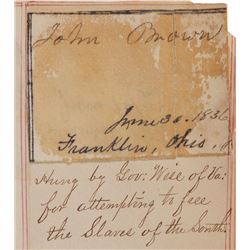 John Brown
June 30. 1836
Franklin, Ohio,
Hung by Gov: Wise of Va:
for attempting to free
the Slaves of the South.